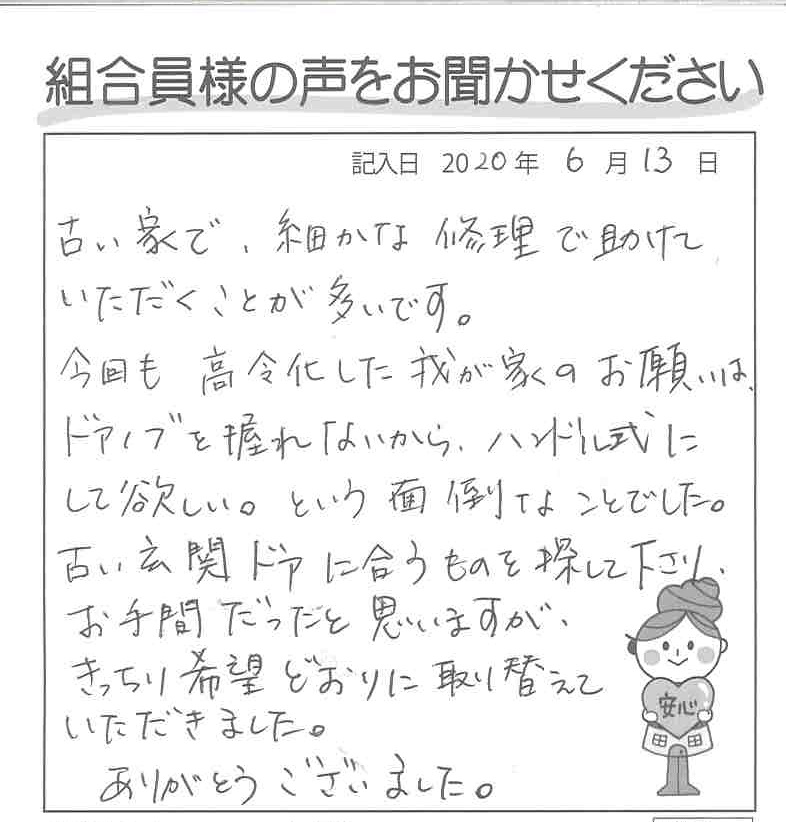 組合員様の声をお聞かせください
記入日 2020年 6月13日
古い家で、細かな修理で助けて
いただくことが多いです。
今回も高令化した我が家のお願いは、
ドアノブを握れないから、ハンドル式に
して欲しい。という面倒なことでした。
古い玄関ドアに合うものを探して下さり、
お手間だったと思いますが、
きっちり希望どおりに取り替えて
いただきました。
ありがとうございました。
安心